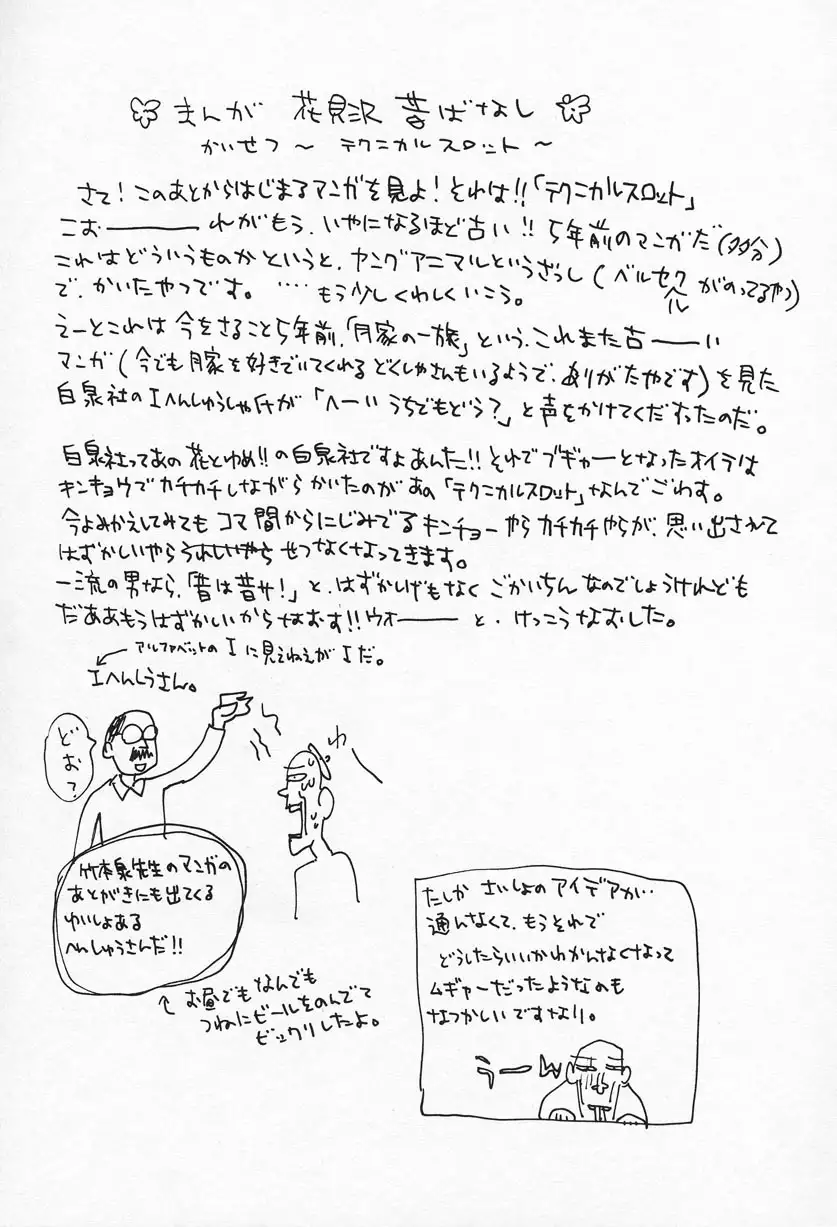 まんが 花見沢 昔ばなし
かいせつ～ テクニカルスロット ～
さて！このあとからはじまるマンガを見よ！それは!!「テクニカルスロット」
こおーーーれがもう、いやになるほど古い!! 5年前のマンガだ(多分)
これはどういうものかというと、ヤングアニマルというざっし(ベルセルクがのってるやつ)
で、かいたやつです。‥‥もう少しくわしくいこう。
えーとこれは今をさること5年前、「月家の一族」という、これまた古ーーい
マンガ(今でも月家を好きでいてくれるどくしゃさんもいるようで、ありがたやです)を見た
白泉社のIへんしゅうしゃ氏が「へーいうちでもどう？」と声をかけてくだすったのだ。
白泉社ってあの花とゆめ!!の白泉社ですよあんた!!それでブギャーとなったオイラは
キンチョウでカチカチしながらかいたのがあの「テクニカルスロット」なんでごわす。
今よみかえしてみてもコマ間からにじみでるキンチョーやらカチカチやらが、思い出されて
はずかしいやらうれしいやらせつなくなってきます。
一流の男なら、「昔は昔サ！」と、はずかしげもなくごかいちんなのでしょうけれども
だああもうはずかしいからなおす!!ウオーーーと、けっこうなおしました。
アルファベットのIに見えねえがIだ。
Iへんしうさん。
どお？
わーい
竹本泉先生のマンガの
あとがきにも出てくる
ゆいしょある
へんしゅうさんだ!!
お昼でもなんでも
つねにビールをのんでて
ビックリしたよ。
たしか さいしょのアイデアが‥
通んなくて、もうそれで
どうしたらいいかわかんなくなって
ムギャーだったようなのも
なつかしいですなり。
うーん